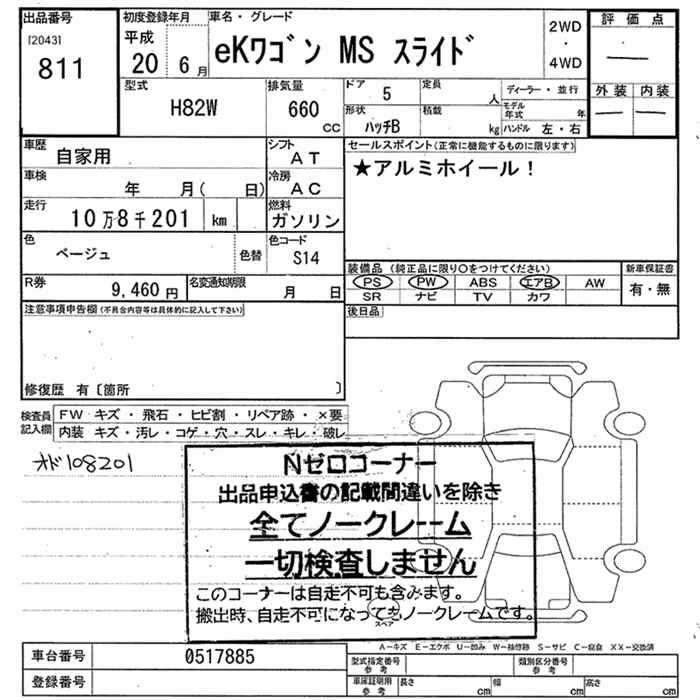 出品番号
[2043]
811
初度登録年月
平成
20 6月
車名・グレード
eKワゴン MS スライド
2WD
・
4WD
評価点
―
外装 内装
― ―
型式
H82W
排気量
660
CC
ドア 5
定員
人
形状
ハッチB
積載
kg
ディーラー・並行
モデル年式 年
ハンドル 左・右
車歴
自家用
シフト
AT
車検
年 月( 日)
冷房
AC
走行
10万8千201 km
燃料
ガソリン
色
ベージュ
色替
色コード
S14
R券
9,460円
名変通知期限
月 日
セールスポイント(正常に機能するものに限ります)
★アルミホイール!
装備品 (純正品に限り〇をつけてください)
PS PW ABS エアB AW
SR ナビ TV カワ
新車保証書
有・無
後日品
注意事項申告欄(不具合内容等は具体的に記入して下さい)
修復歴 有〔箇所 〕
検査員記入欄
FW キズ・飛石・ヒビ割・リペア跡・×要
内装 キズ・汚レ・コゲ・穴・スレ・キレ・破レ
オド108201
Nゼロコーナー
出品申込書の記載間違いを除き
全てノークレーム
一切検査しません
このコーナーは自走不可も含みます。
搬出時、自走不可になってもノークレームです。
スペア
A-キズ E-エクボ U-凹み W-補修跡 S-サビ C-腐食 XX-交換済
車台番号 0517885
登録番号
型式指定番号 参考
類別区分番号 参考
車庫証明用 参考
長さ cm 幅 cm 高さ cm